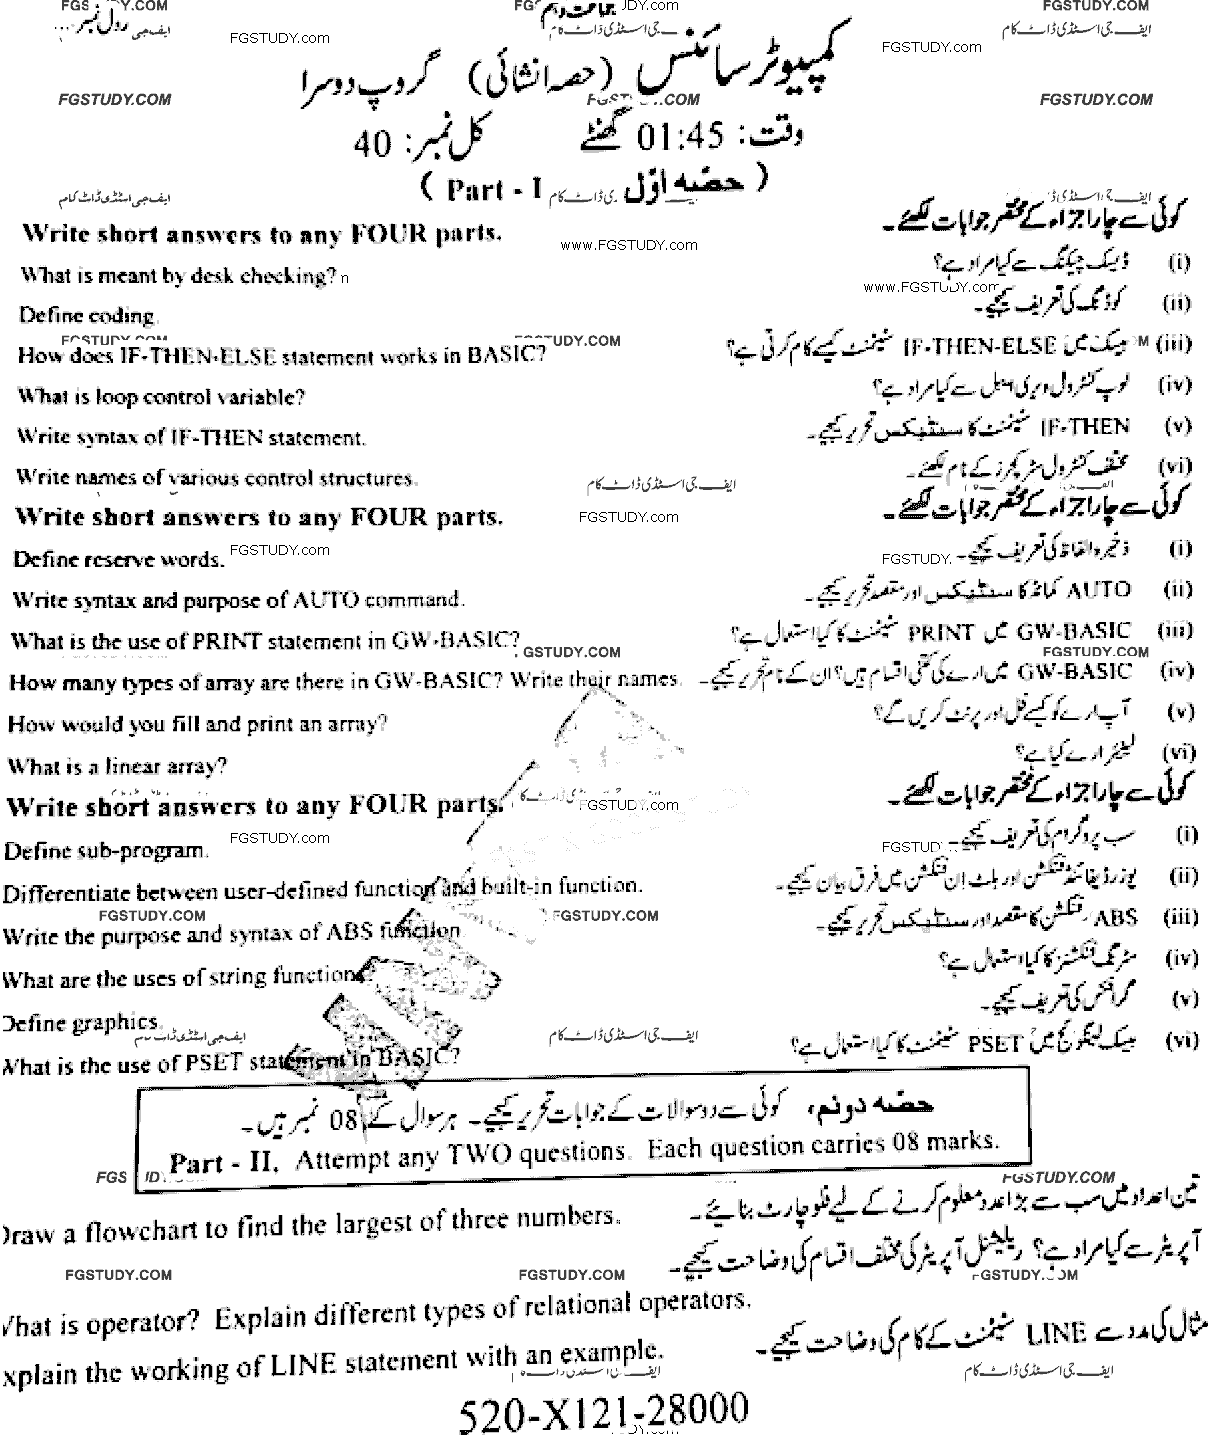 جماعت دہم
رول نمبر ...
کمپیوٹر سائنس (حصہ انشائی) گروپ دوسرا
وقت: 01:45 گھنٹے کل نمبر: 40
( Part - I حصّہ اوّل )
Write short answers to any FOUR parts. کوئی سے چار اجزاء کے مختصر جوابات لکھئے۔
What is meant by desk checking? ڈیسک چیکنگ سے کیا مراد ہے؟ (i)
Define coding. کوڈنگ کی تعریف کیجیے۔ (ii)
How does IF-THEN-ELSE statement works in BASIC? بیسک میں IF-THEN-ELSE سٹیٹمنٹ کیسے کام کرتی ہے؟ (iii)
What is loop control variable? لوپ کنٹرول ویری ایبل سے کیا مراد ہے؟ (iv)
Write syntax of IF-THEN statement. IF-THEN سٹیٹمنٹ کا سنٹیکس تحریر کیجیے۔ (v)
Write names of various control structures. مختلف کنٹرول سٹرکچرز کے نام لکھئے۔ (vi)
Write short answers to any FOUR parts. کوئی سے چار اجزاء کے مختصر جوابات لکھئے۔
Define reserve words. ذخیرہ الفاظ کی تعریف کیجیے۔ (i)
Write syntax and purpose of AUTO command. AUTO کمانڈ کا سنٹیکس اور مقصد تحریر کیجیے۔ (ii)
What is the use of PRINT statement in GW-BASIC? GW-BASIC میں PRINT سٹیٹمنٹ کا کیا استعمال ہے؟ (iii)
How many types of array are there in GW-BASIC? Write their names. GW-BASIC میں ارے کی کتنی اقسام ہیں؟ ان کے نام تحریر کیجیے۔ (iv)
How would you fill and print an array? آپ ارے کو کیسے فل اور پرنٹ کریں گے؟ (v)
What is a linear array? لینئر ارے کیا ہے؟ (vi)
Write short answers to any FOUR parts. کوئی سے چار اجزاء کے مختصر جوابات لکھئے۔
Define sub-program. سب پروگرام کی تعریف کیجیے۔ (i)
Differentiate between user-defined function and built-in function. یوزر ڈیفائنڈ فنکشن اور بلٹ اِن فنکشن میں فرق بیان کیجیے۔ (ii)
Write the purpose and syntax of ABS function. ABS فنکشن کا مقصد اور سنٹیکس تحریر کیجیے۔ (iii)
What are the uses of string function? سٹرنگ فنکشنز کا کیا استعمال ہے؟ (iv)
Define graphics. گرافکس کی تعریف کیجیے۔ (v)
What is the use of PSET statement in BASIC? بیسک لینگوئج میں PSET سٹیٹمنٹ کا کیا استعمال ہے؟ (vi)
حصّہ دوئم، کوئی سے دو سوالات کے جوابات تحریر کیجیے۔ ہر سوال کے 08 نمبر ہیں۔
Part - II, Attempt any TWO questions. Each question carries 08 marks.
Draw a flowchart to find the largest of three numbers. تین اعداد میں سب سے بڑا عدد معلوم کرنے کے لیے فلو چارٹ بنائیے۔
آپریٹر سے کیا مراد ہے؟ ریلیشنل آپریٹر کی مختلف اقسام کی وضاحت کیجیے۔
What is operator? Explain different types of relational operators.
Explain the working of LINE statement with an example. مثال کی مدد سے LINE سٹیٹمنٹ کے کام کی وضاحت کیجیے۔
520-X121-28000